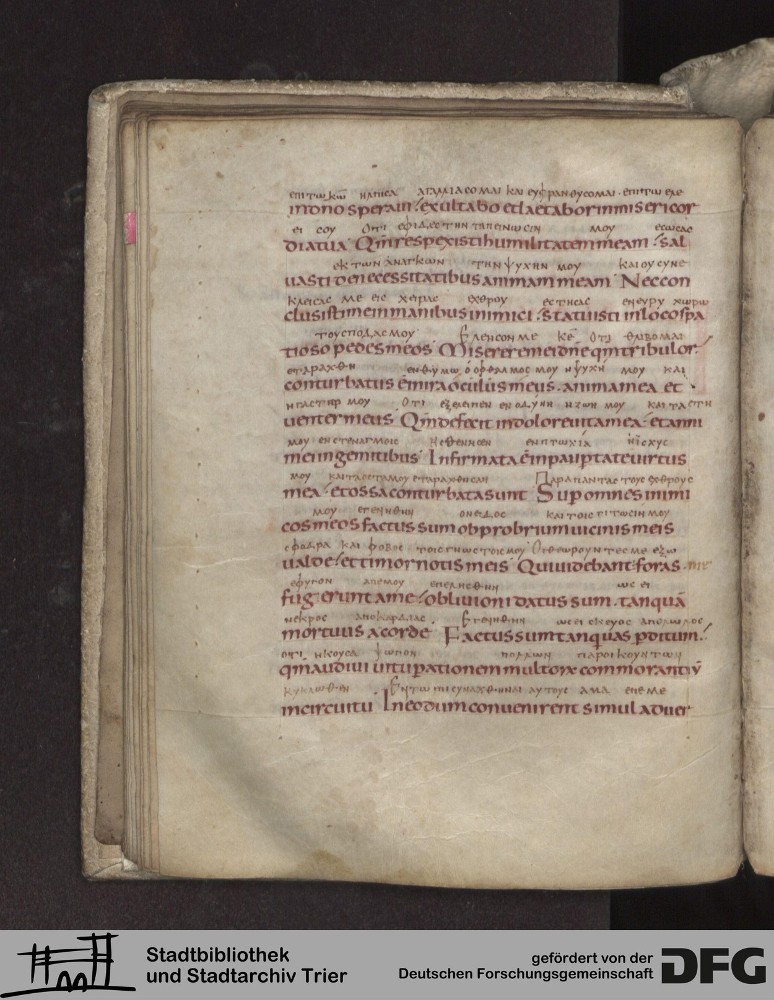 επιτω κω ηλπισα αγαλλιασομαι και ευφρανθυσομαι επιτω ελε
in dno speravi exultabo et laetabor in misericor
ει σου Οτι εφιδες την ταπεινωσιν μου εσωσας
dia tua Qm respexisti humilitatem meam sal
εκ των αναγκων την ψυχην μου και ου συνε
uasti de necessitatibus animam meam Nec con
κλεισας με εις χειρας εχθρου εστησας εν ευρυ χωρω
clusisti me in manibus inimici statuisti in loco spa
τους ποδας μου Ελεησον με κε οτι θλιβομαι
tioso pedes meos Miserere mei dne qm tribulor
εταραχθη εν θυμω ο οφθαλμος μου η ψυχη μου και
conturbatus e in ira oculus meus anima mea et
η γαστηρ μου Οτι εξελειπεν εν οδυνη η ζωη μου και τα ετη
uenter meus Qm defecit in dolore uita mea et anni
μου εν στεναγμοις Ησθενησεν εν πτωχια η ισχυς
mei in gemitibus Infirmata e in paupertate uirtus
μου και τα οστα μου εταραχθησαν Παρα παντας τους εχθρους
mea et ossa conturbata sunt Sup omnes inimi
μου εγενηθην ονειδος και τοις γιτωσιν μου
cos meos factus sum obprobrium uicinis meis
σφοδρα και φοβος τοις γνωστοις μου Οι θεωρουντες με εξω
ualde et timor notis meis Qui uidebant foras me
εφυγον απ εμου επελησθην ως ει
fugerunt a me obliuioni datus sum tanquā
νεκρος απο καρδιας Εγενηθην ωσει σκευος απολωλος
mortuus a corde Factus sum tanquā uas pditum
οτι ηκουσα ψωγον πολλων παροικουντων
qm audiui uitupationem multorum commorantiū
κυκλωθεν Εν τω επισυναχθηναι αυτους αμα επ εμε
in circuitu In eo dum conuenirent simul aduer
Stadtbibliothek
und Stadtarchiv Trier
gefördert von der
Deutschen Forschungsgemeinschaft
DFG